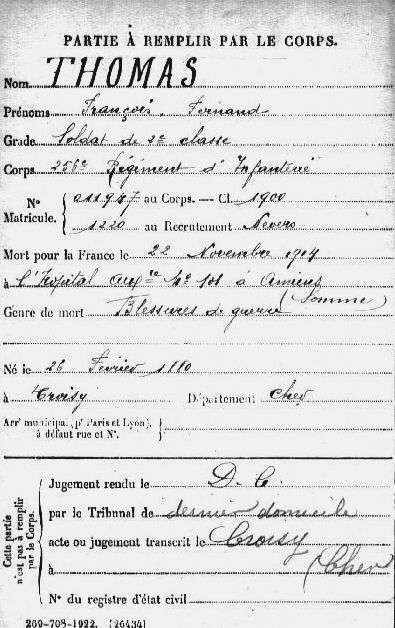 PARTIE À REMPLIR PAR LE CORPS.
Nom THOMAS
Prénoms François, Fernand
Grade Soldat de 2e classe
Corps 256e Régiment d'Infanterie
N° Matricule. { 011947 au Corps. — Cl. 1900
1220 au Recrutement Nevers
Mort pour la France le 22 Novembre 1914
à l'Hopital auxre No 101 à Amiens
(Somme)
Genre de mort Blessures de guerre
Né le 26 Février 1880
à Croisy Département Cher
Arrt municipal (pr Paris et Lyon),
à défaut rue et N°.
Cette partie n'est pas à remplir par le Corps.
Jugement rendu le D. C.
par le Tribunal de dernier domicile
acte ou jugement transcrit le Croisy
à (Cher)
N° du registre d'état civil
269-708-1922. [26434]